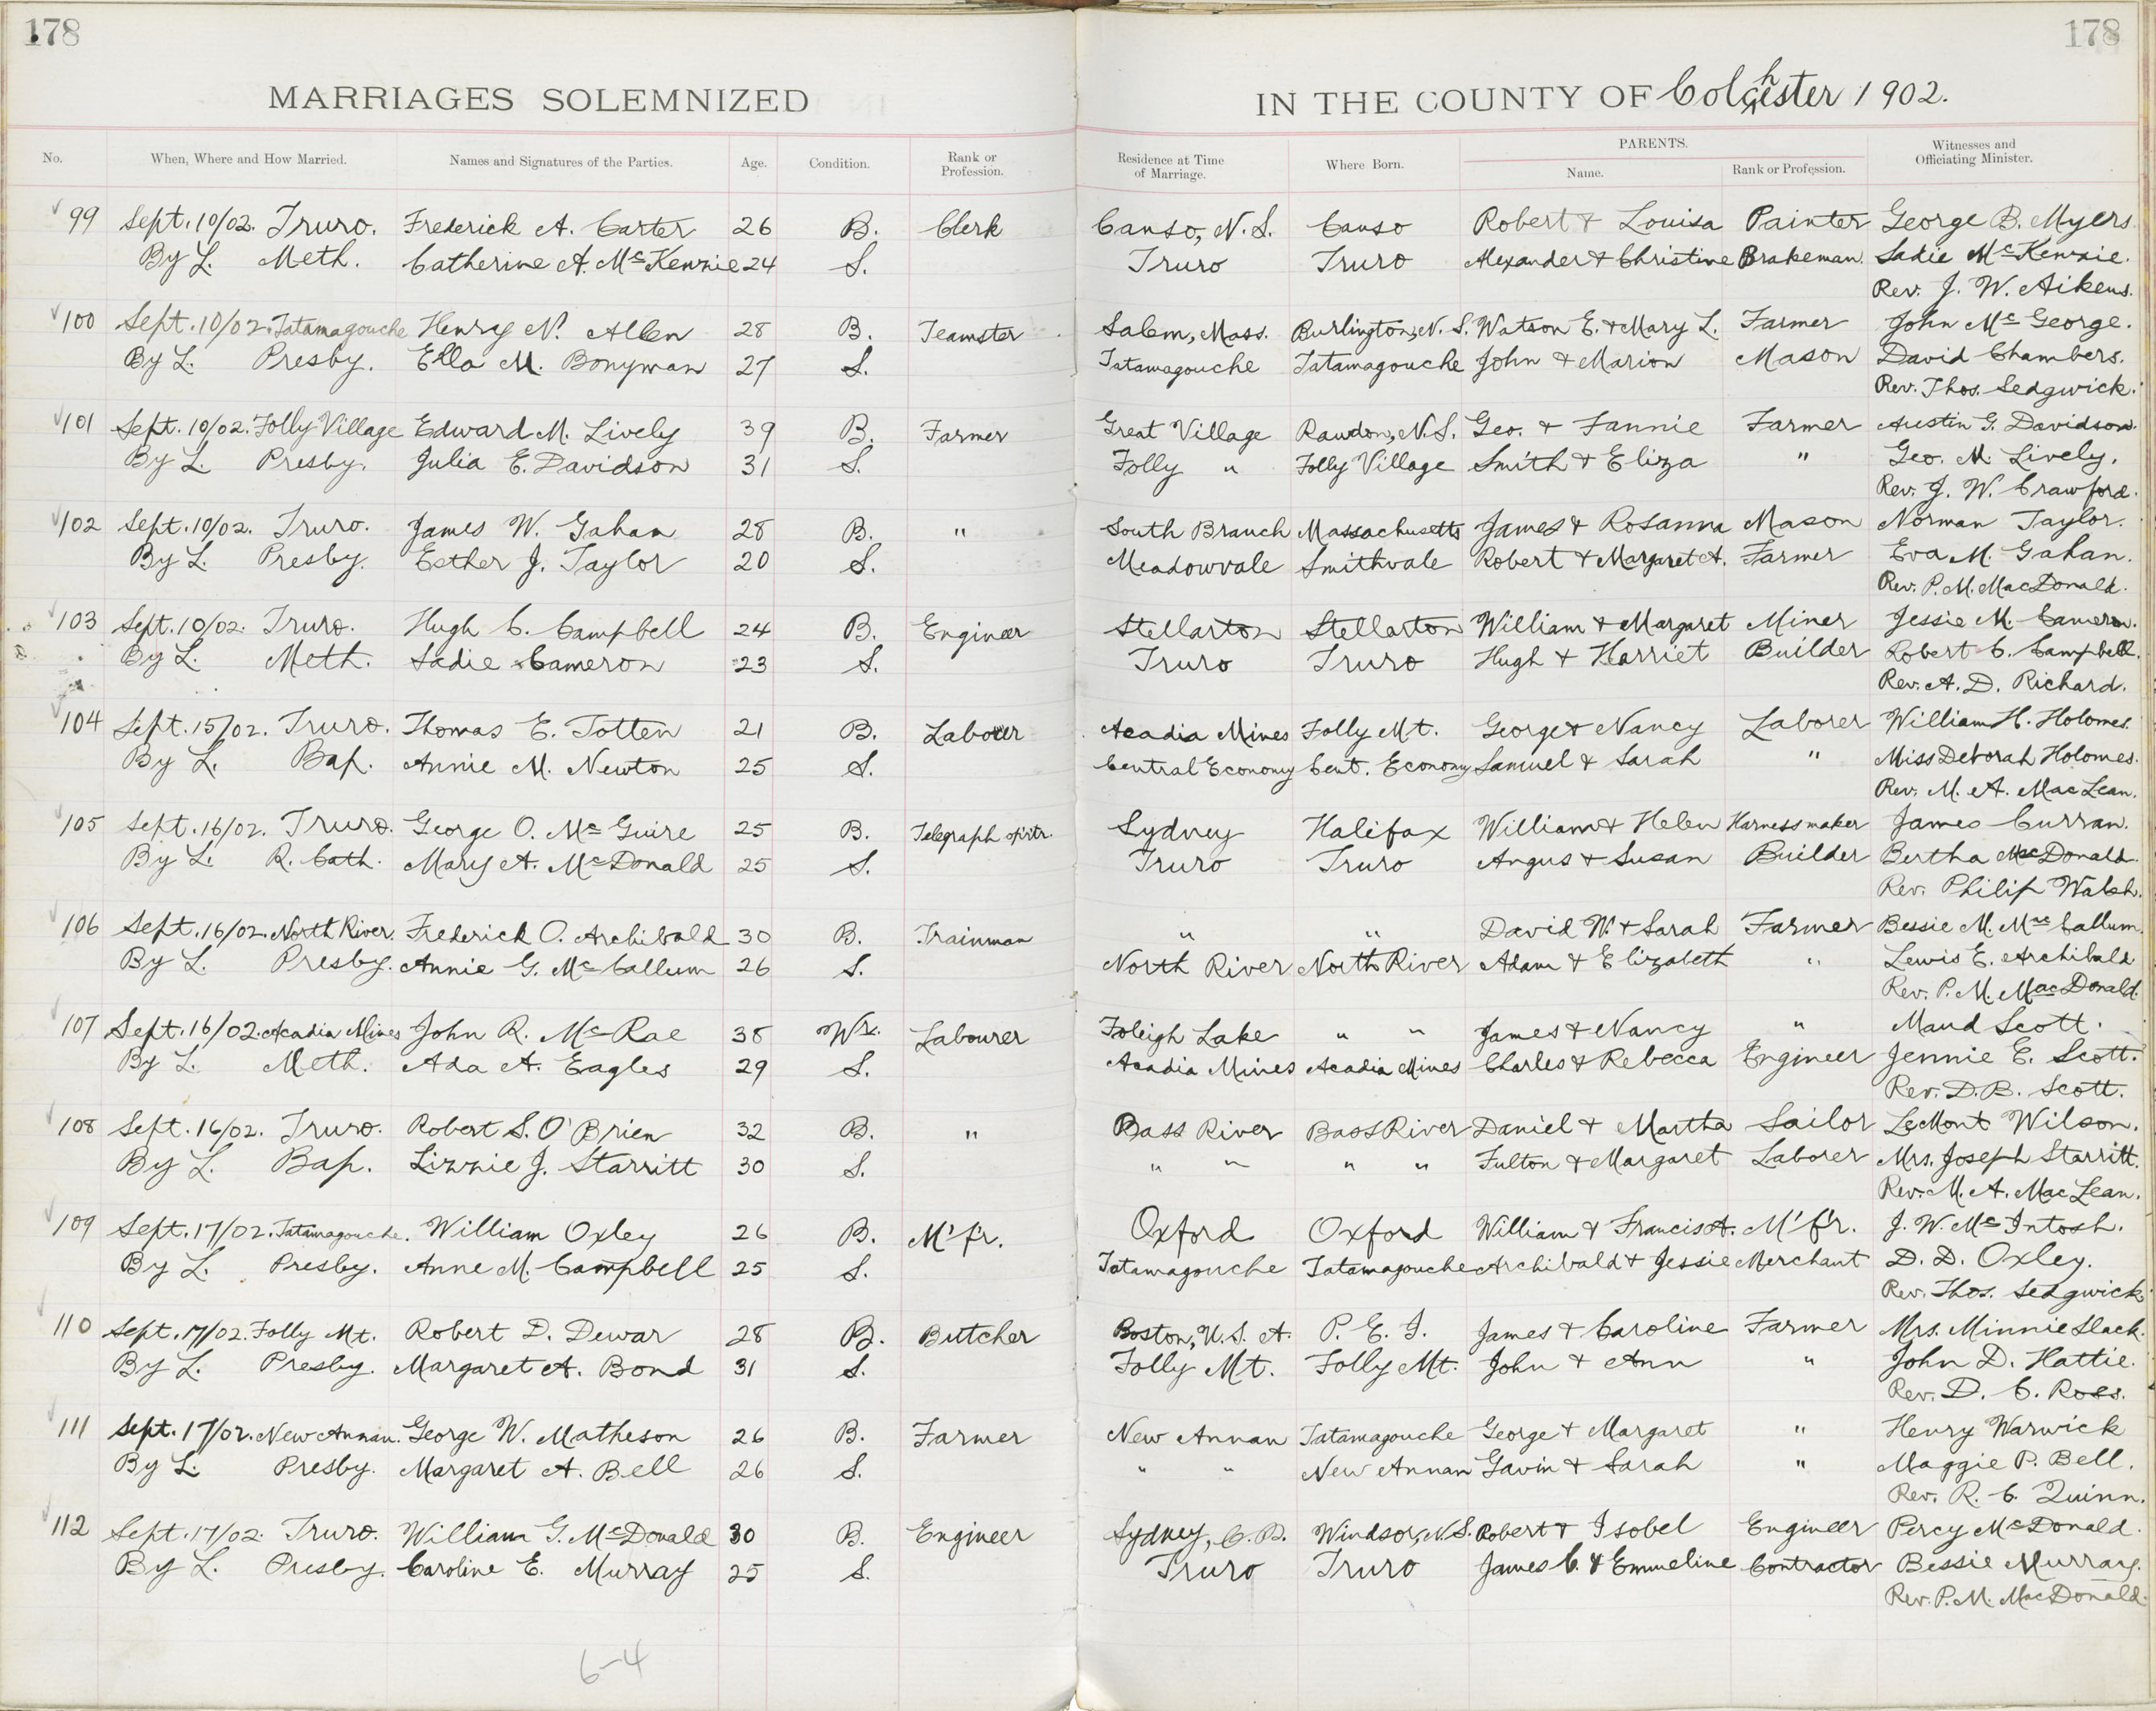 178 178
MARRIAGES SOLEMNIZED IN THE COUNTY OF Colchester 1902.
No. When, Where and How Married. Names and Signatures of the Parties. Age. Condition. Rank or Profession. Residence at Time of Marriage. Where Born. PARENTS. Name. Rank or Profession. Witnesses and Officiating Minister.
99 Sept. 10/02. Truro. Frederick A. Carter 26 B. Clerk Canso, N.S. Canso Robert & Louisa Painter George B. Myers.
By L. Meth. Catherine A. McKenzie 24 S. Truro Truro Alexander & Christine Brakeman. Sadie McKenzie.
Rev. J. W. Aikens.
100 Sept. 10/02. Tatamagouche Henry N. Allen 28 B. Teamster Salem, Mass. Burlington, N.S. Watson E. & Mary L. Farmer John McGeorge.
By L. Presby. Ella M. Bonyman 27 S. Tatamagouche Tatamagouche John & Marion Mason David Chambers.
Rev. Thos. Sedgwick.
101 Sept. 10/02. Folly Village Edward M. Lively 39 B. Farmer Great Village Rawdon, N.S. Geo. & Fannie Farmer Austin G. Davidson.
By L. Presby. Julia E. Davidson 31 S. Folly " Folly Village Smith & Eliza " Geo. M. Lively.
Rev. J. W. Crawford.
102 Sept. 10/02. Truro. James W. Gahan 28 B. " South Branch Massachusetts James & Rosanna Mason Norman Taylor.
By L. Presby. Esther J. Taylor 20 S. Meadowvale Smithvale Robert & Margaret A. Farmer Eva M. Gahan.
Rev. P. M. MacDonald.
103 Sept. 10/02. Truro. Hugh C. Campbell 24 B. Engineer Stellarton Stellarton William & Margaret Miner Jessie M. Cameron.
By L. Meth. Sadie Cameron 23 S. Truro Truro Hugh & Harriet Builder Robert C. Campbell.
Rev. A. D. Richard.
104 Sept. 15/02. Truro. Thomas E. Totten 21 B. Labouer Acadia Mines Folly Mt. George & Nancy Laborer William H. Holomes.
By L. Bap. Annie M. Newton 25 S. Central Economy Cent. Economy Samuel & Sarah " Miss Deborah Holomes.
Rev. M. A. MacLean.
105 Sept. 16/02. Truro. George O. McGuire 25 B. Telegraph Sydney Halifax William & Helen Harnessmaker James Curran.
By L. R. Cath. Mary A. McDonald 25 S. Truro Truro Angus & Susan Builder Bertha MacDonald.
Rev. Philip Walsh.
106 Sept. 16/02. North River. Frederick O. Archibald 30 B. Trainman " " David W. & Sarah Farmer Bessie M. MacCallum.
By L. Presby. Annie G. McCallum 26 S. North River North River Adam & Elizabeth " Lewis E. Archibald
Rev. P. M. MacDonald.
107 Sept. 16/02. Acadia Mines John R. McRae 38 Wr. Labourer Foleigh Lake " " James & Nancy " Maud Scott.
By L. Meth. Ada A. Eagles 29 S. Acadia Mines Acadia Mines Charles & Rebecca Engineer Jennie E. Scott.
Rev. D. B. Scott.
108 Sept. 16/02. Truro. Robert S. O'Brien 32 B. " Bass River Bass River Daniel & Martha Sailor LeMont Wilson.
By L. Bap. Lizzie J. Starritt 30 S. " " " " Fulton & Margaret Laborer Mrs. Joseph Starritt.
Rev. M. A. MacLean.
109 Sept. 17/02. Tatamagouche. William Oxley 26 B. M'f'r. Oxford Oxford William & Francis A. M'f'r. J. W. McIntosh.
By L. Presby. Anne M. Campbell 25 S. Tatamagouche Tatamagouche Archibald & Jessie Merchant D. D. Oxley.
Rev. Thos. Sedgwick.
110 Sept. 17/02. Folly Mt. Robert D. Dewar 28 B. Butcher Boston, U.S.A. P.E.I. James & Caroline Farmer Mrs. Minnie Slack.
By L. Presby. Margaret A. Bond 31 S. Folly Mt. Folly Mt. John & Ann " John D. Hattie.
Rev. D. C. Ross.
111 Sept. 17/02. New Annan. George W. Matheson 26 B. Farmer New Annan Tatamagouche George & Margaret " Henry Warwick
By L. Presby. Margaret A. Bell 26 S. " " New Annan Gavin & Sarah " Maggie P. Bell.
Rev. R. C. Quinn.
112 Sept. 17/02. Truro. William G. McDonald 30 B. Engineer Sydney, C.B. Windsor, N.S. Robert & Isobel Engineer Percy McDonald.
By L. Presby. Caroline E. Murray 25 S. Truro Truro James C. & Emmeline Contractor Bessie Murray.
Rev. P. M. MacDonald.
6-4